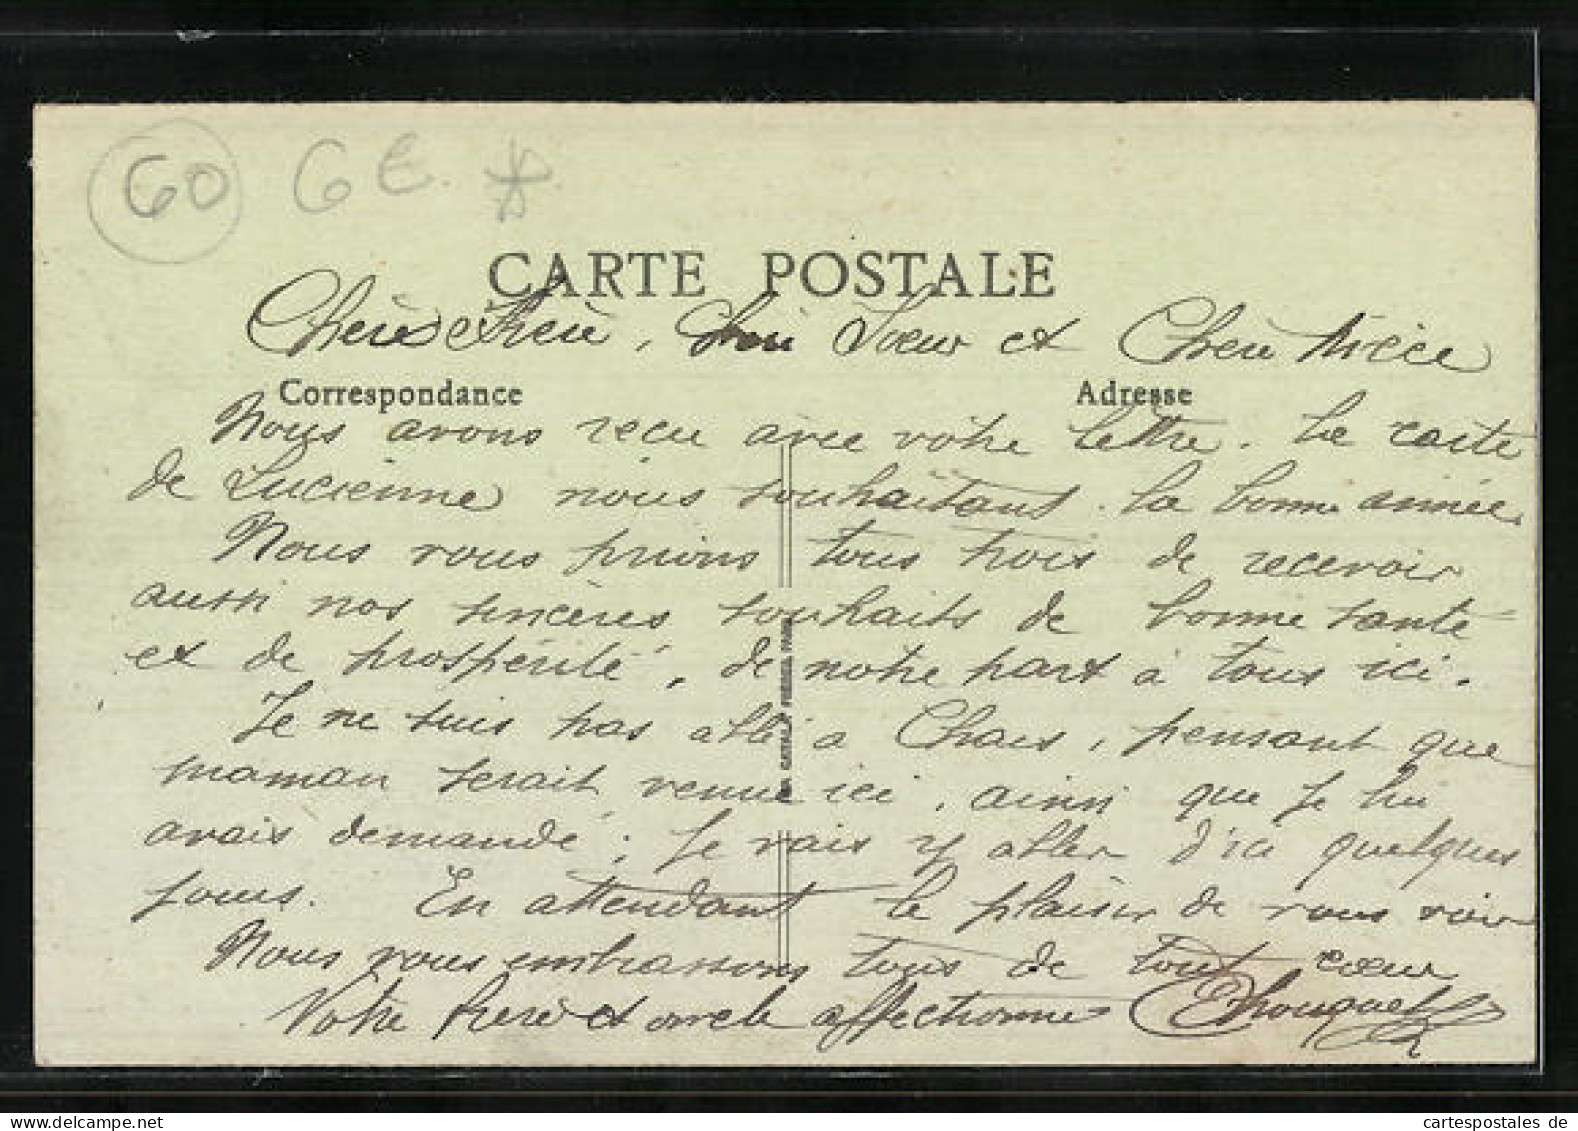 60 GE *
CARTE POSTALE
Chère Frère, Soeur et Chère Nièce
Correspondance
Adresse
Nous avons reçu avec votre lettre. Le carte
de Lucienne nous souhaitant la bonne année.
Nous vous prions tous trois de recevoir
aussi nos sincères souhaits de bonne santé
et de prospérité, de notre part à tous ici.
Je ne suis pas allé à Chars, pensant que
maman serait venue ici, ainsi que je lui
avais demandé; je vais y aller d'ici quelques
jours. En attendant le plaisir de vous voir
Nous vous embrassons tous de tout coeur
Votre frère et oncle affectionné
CATALA FRERES, PARIS
cartespostales de